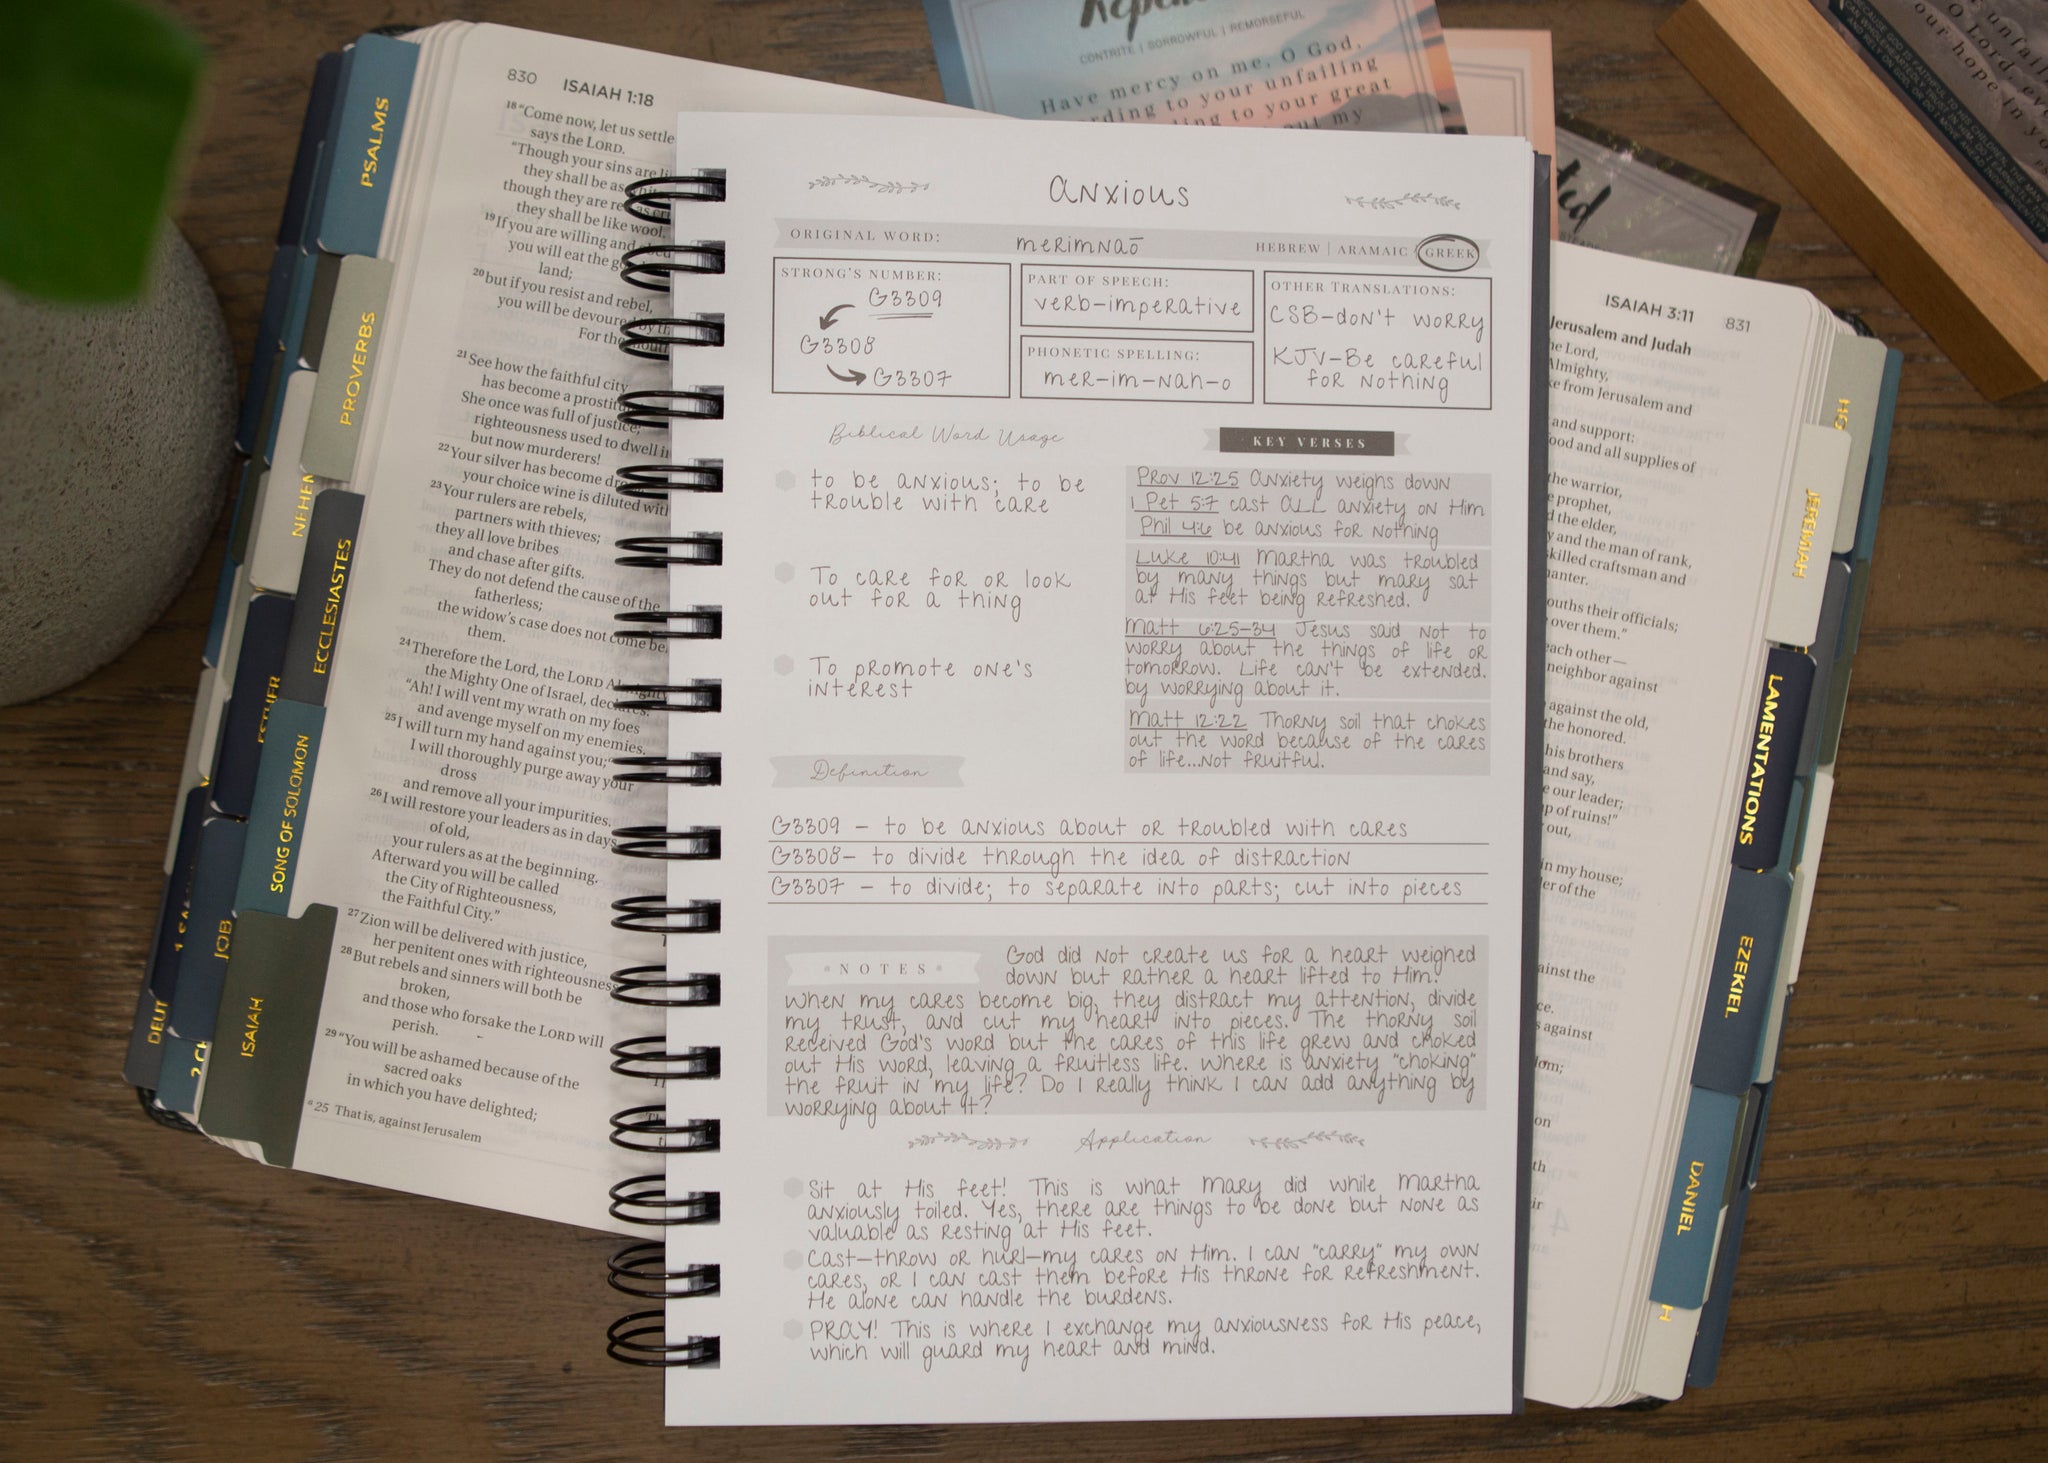 Have mercy on me, O God,
CONTRITE | SORROWFUL | REMORSEFUL
to your unfailing
to your great
my
830 ISAIAH 1:18
18 "Come now, let us settle
says the LORD.
"Though your sins are
they shall be as
though they are red as
they shall be like wool.
19 If you are willing and
you will eat the
land;
20 but if you resist and rebel,
you will be devoured by
For the
21 See how the faithful city
has become a
She once was full of justice;
righteousness used to dwell
but now murderers!
22 Your silver has become
your choice wine is diluted with
23 Your rulers are rebels,
partners with thieves;
they all love bribes
and chase after gifts.
They do not defend the cause of the
fatherless;
the widow's case does not come
them.
24 Therefore the Lord, the LORD
the Mighty One of Israel, declares:
"Ah! I will vent my wrath on my foes
and avenge myself on my enemies.
25 I will turn my hand against you;
I will thoroughly purge away your
dross
and remove all your impurities.
26 I will restore your leaders as in days
of old,
your rulers as at the beginning.
Afterward you will be called
the City of Righteousness,
the Faithful City."
27 Zion will be delivered with justice,
her penitent ones with righteousness
28 But rebels and sinners will both be
broken,
and those who forsake the LORD will
perish.
29 "You will be ashamed because of the
sacred oaks
in which you have delighted;
a 25 That is, against Jerusalem
PSALMS
PROVERBS
ECCLESIASTES
SONG OF SOLOMON
ISAIAH
JOB
DEUT
anxious
ORIGINAL WORD: merimnaō HEBREW | ARAMAIC GREEK
STRONG'S NUMBER:
G3309
G3308
G3307
PART OF SPEECH:
verb-imperative
PHONETIC SPELLING:
mer-im-nah-o
OTHER TRANSLATIONS:
CSB-don't worry
KJV-Be careful
for nothing
Biblical Word Usage
to be anxious; to be
trouble with care
To care for or look
out for a thing
To promote one's
interest
KEY VERSES
Prov 12:25 Anxiety weighs down
1 Pet 5:7 cast ALL anxiety on Him
Phil 4:6 be anxious for nothing
Luke 10:41 Martha was troubled
by many things but mary sat
at His feet being refreshed.
Matt 6:25-34 Jesus said not to
worry about the things of life or
tomorrow. Life can't be extended.
by worrying about it.
Matt 12:22 Thorny soil that chokes
out the word because of the cares
of life...not fruitful.
Definition
G3309 - to be anxious about or troubled with cares
G3308- to divide through the idea of distraction
G3307 - to divide; to separate into parts; cut into pieces
NOTES
God did not create us for a heart weighed
down but rather a heart lifted to Him.
When my cares become big, they distract my attention, divide
my trust, and cut my heart into pieces. The thorny soil
received God's word but the cares of this life grew and choked
out His word, leaving a fruitless life. Where is anxiety "choking"
the fruit in my life? Do I really think I can add anything by
worrying about it?
Application
Sit at His feet! This is what Mary did while Martha
anxiously toiled. Yes, there are things to be done but none as
valuable as resting at His feet.
Cast-throw or hurl-my cares on Him. I can "carry" my own
cares, or I can cast them before His throne for refreshment.
He alone can handle the burdens.
PRAY! This is where I exchange my anxiousness for His peace,
which will guard my heart and mind.
ISAIAH 3:11 831
Jerusalem and Judah
Lord,
Almighty,
from Jerusalem and
and support:
and all supplies of
the warrior,
prophet,
the elder,
and the man of rank,
skilled craftsman and
their officials;
over them."
each other—
neighbor against
against the old,
the honored.
his brothers
and say,
our leader;
of ruins!"
out,
in my house;
of the
JEREMIAH
LAMENTATIONS
EZEKIEL
DANIEL